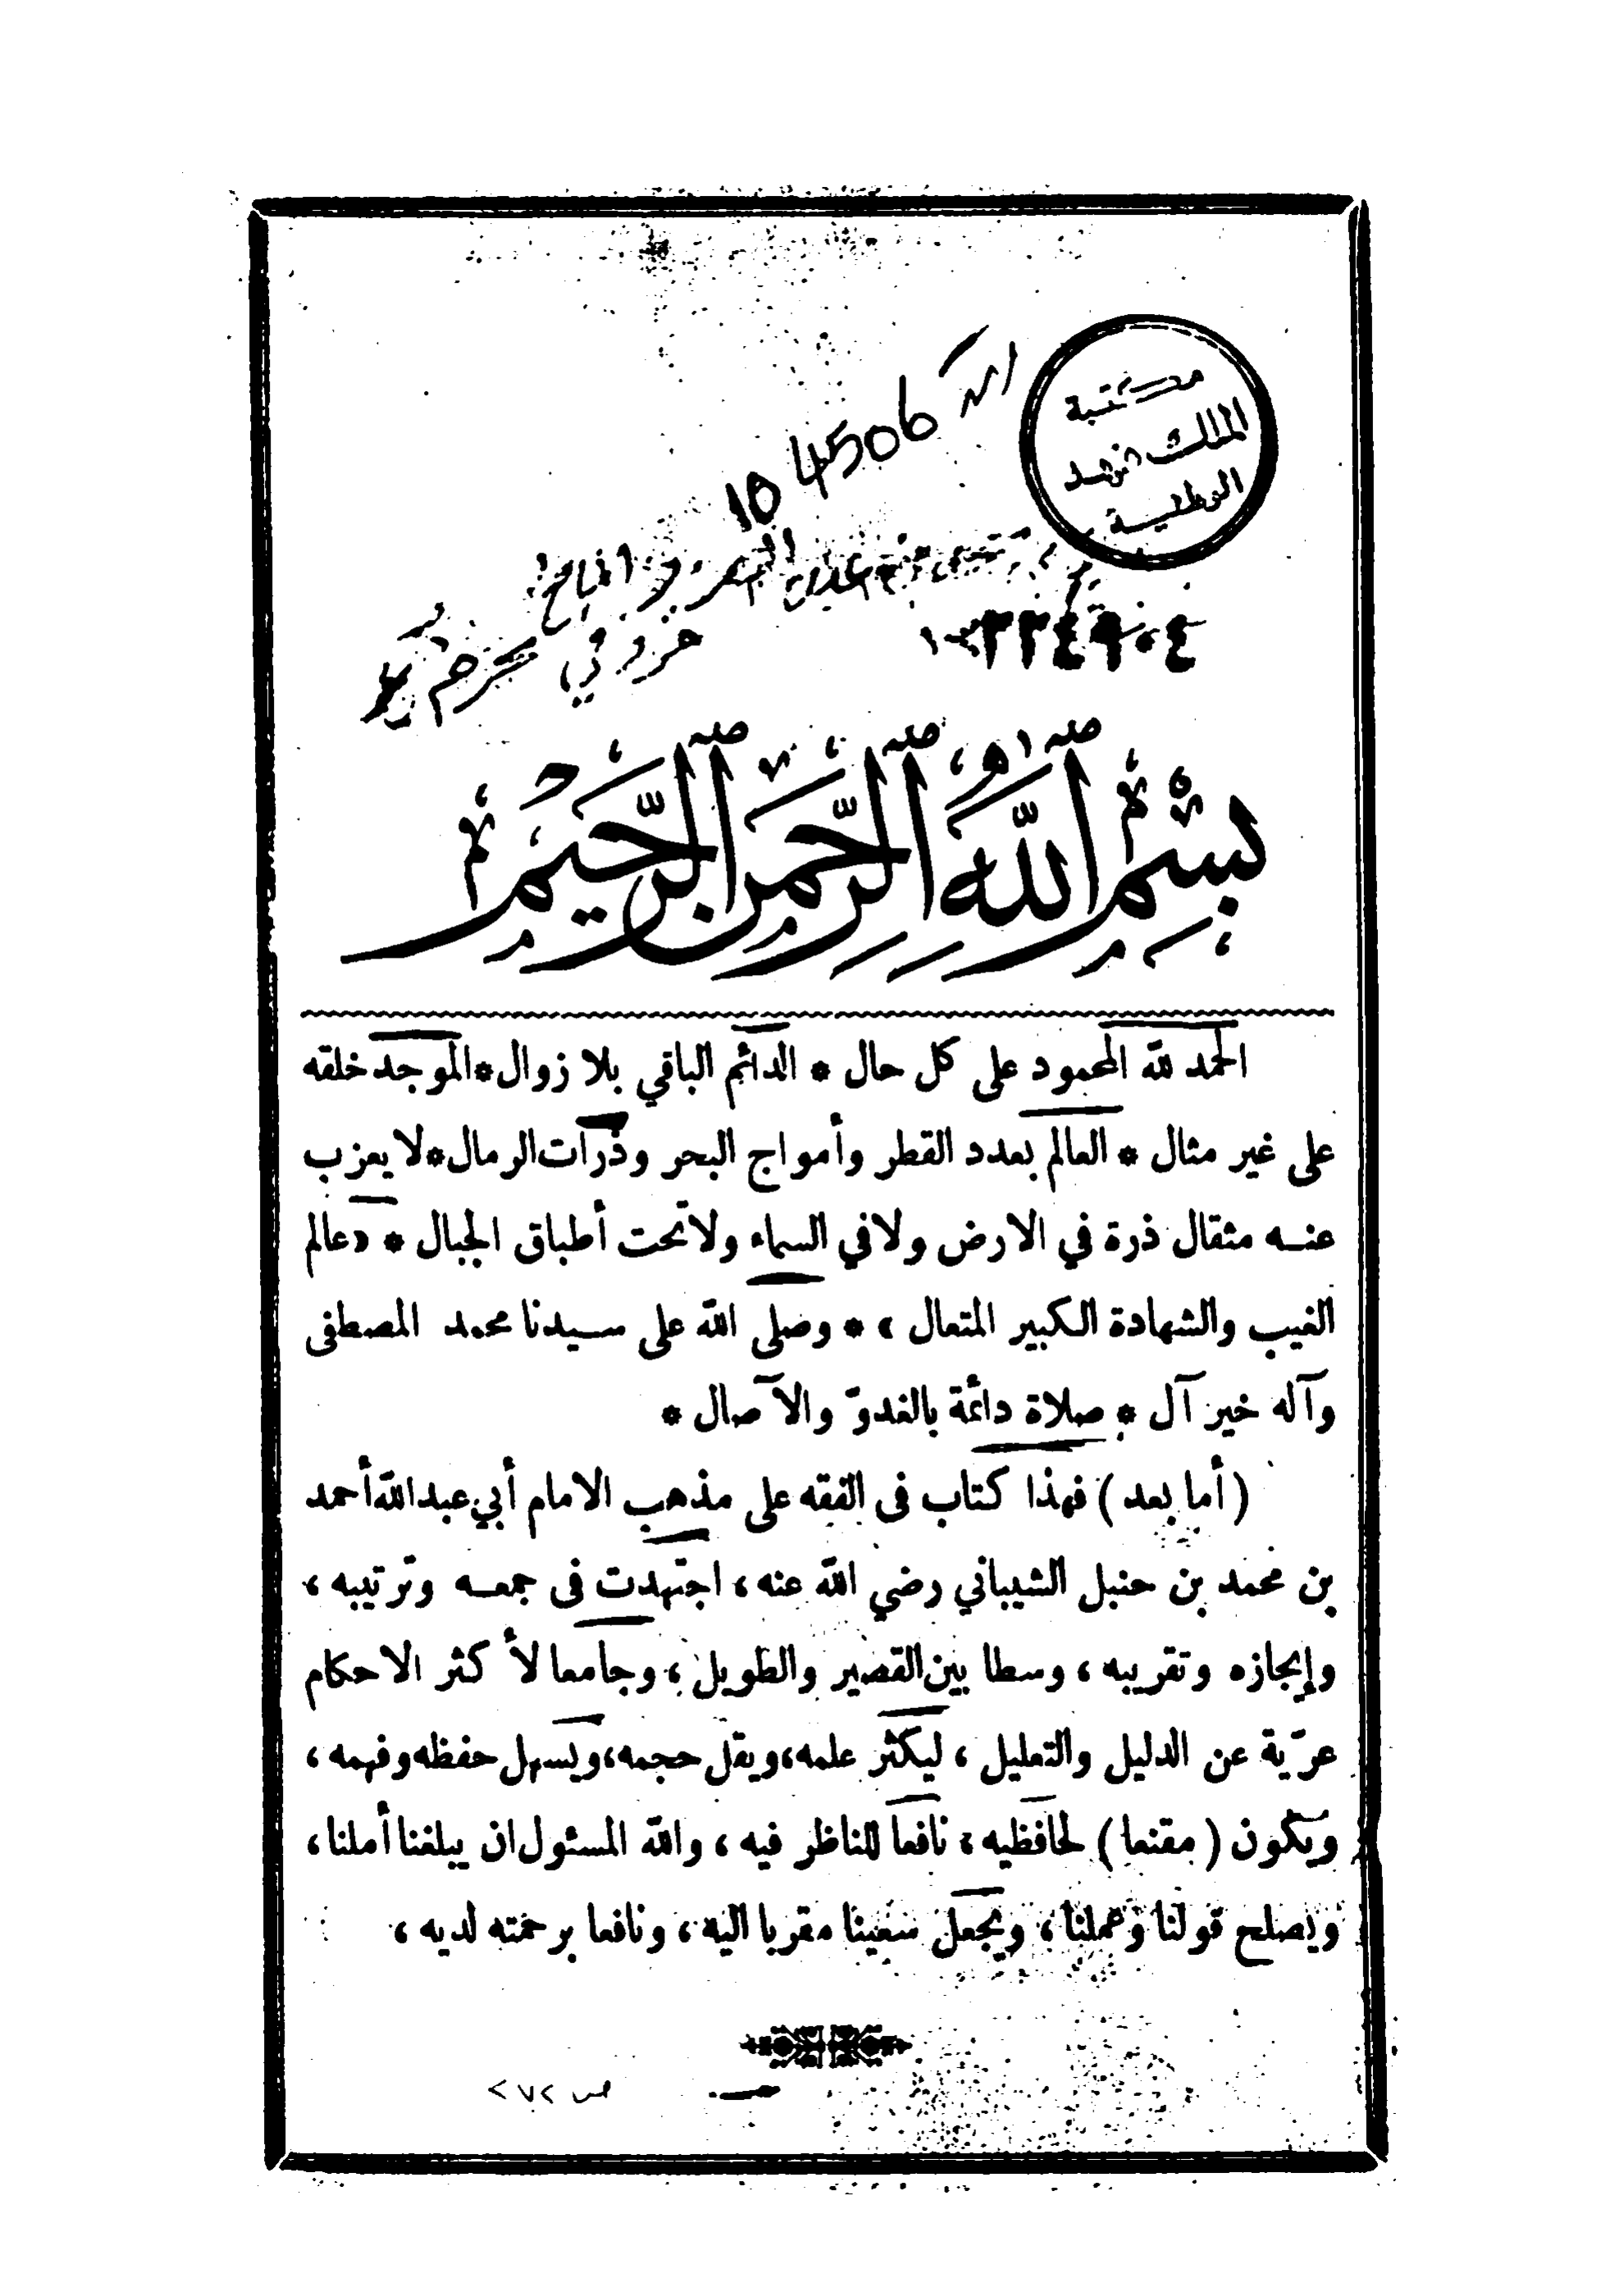 مكتبة
الملك فهد
الوطنية
104506
بِسْمِ ٱللَّهِ ٱلرَّحْمَنِ ٱلرَّحِيمِ
الحمد لله المحمود على كل حال * الدائم الباقي بلا زوال * الموجد خلقه
على غير مثال * العالم بعدد القطر وأمواج البحر وذرات الرمال * لا يعزب
عنه مثقال ذرة في الارض ولا في السماء ولا تحت أطباق الجبال * «عالم
الغيب والشهادة الكبير المتعال» * وصلى الله على سيدنا محمد المصطفى
وآله خير آل * صلاة دائمة بالغدوّ والآصال *
(أما بعد) فهذا كتاب فى الفقه على مذهب الامام أبي عبد الله أحمد
بن محمد بن حنبل الشيباني رضي الله عنه، اجتهدت فى جمعه وترتيبه،
وإيجازه وتقريبه، وسطا بين القصير والطويل، وجامعا لأكثر الاحكام
عريّة عن الدليل والتعليل، ليكثر علمه، ويقل حجمه، ويسهل حفظه وفهمه،
ويكون (مقنعا) لحافظيه، نافعا للناظر فيه، والله المسئول ان يبلغنا أملنا،
ويصلح قولنا وعملنا، ويجعل سعينا مقربا اليه، ونافعا برحمته لديه،